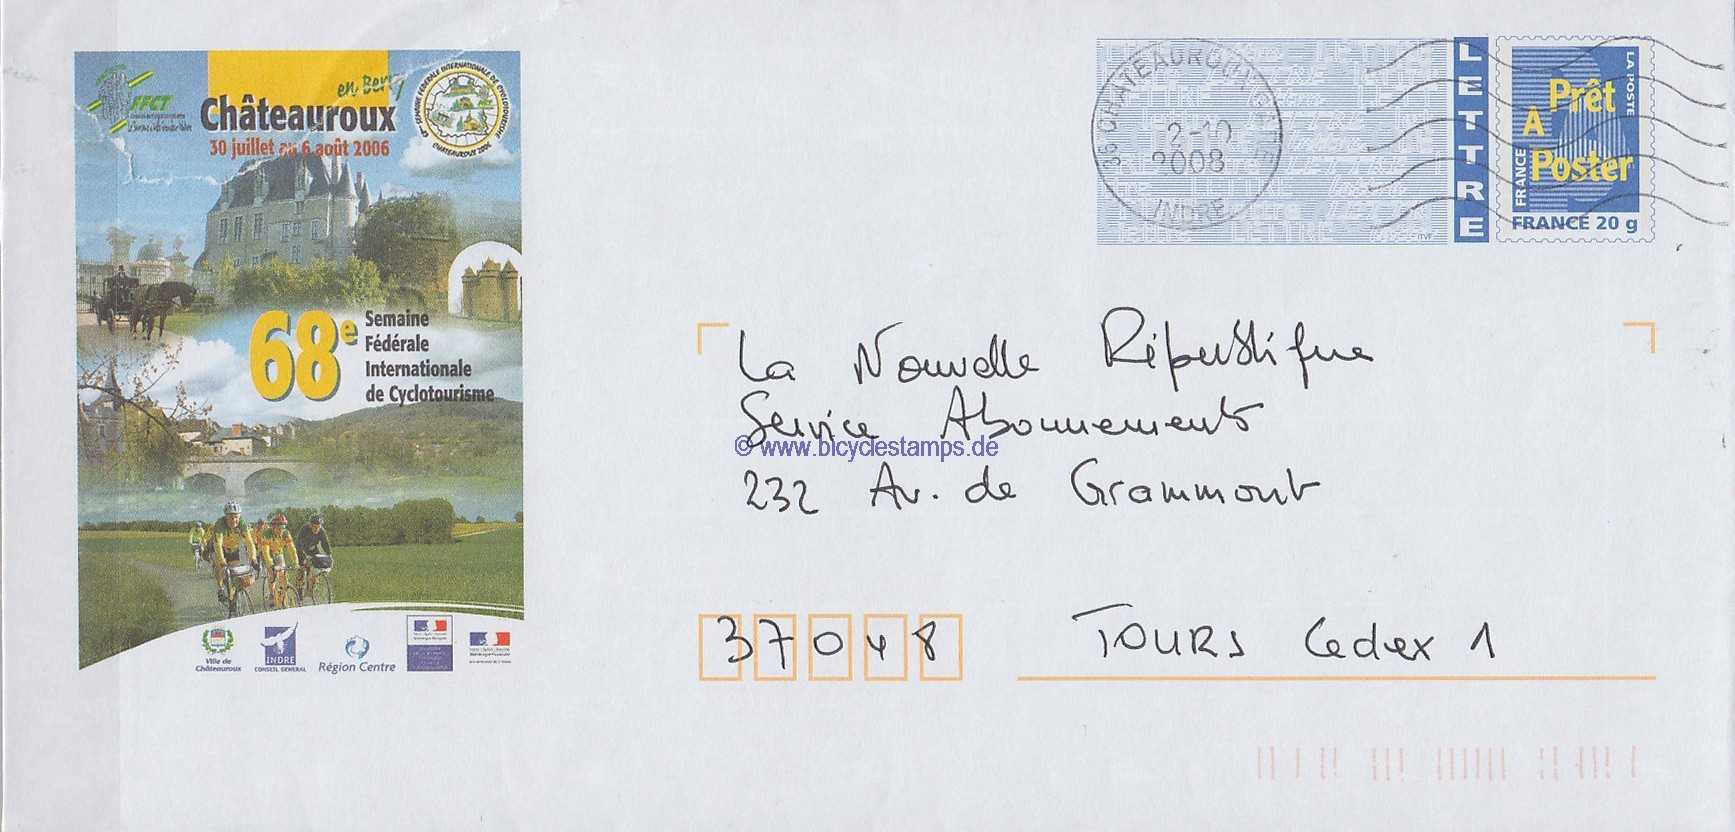 FFCT
en Berry
Châteauroux
30 juillet au 6 août 2006
68e SEMAINE FÉDÉRALE INTERNATIONALE DE CYCLOTOURISME
CHATEAUROUX 2006
68e
Semaine
Fédérale
Internationale
de Cyclotourisme
Ville de
Châteauroux
INDRE
CONSEIL GENERAL
Région Centre
36 CHATEAUROUX GARE
2-10
2008
INDRE
LETTRE
LA POSTE
Prêt
A
Poster
FRANCE
FRANCE 20 g
ITVF
La Nouvelle République
Service Abonnements
© www.bicyclestamps.de
232 Av. de Grammont
37048 TOURS Cedex 1